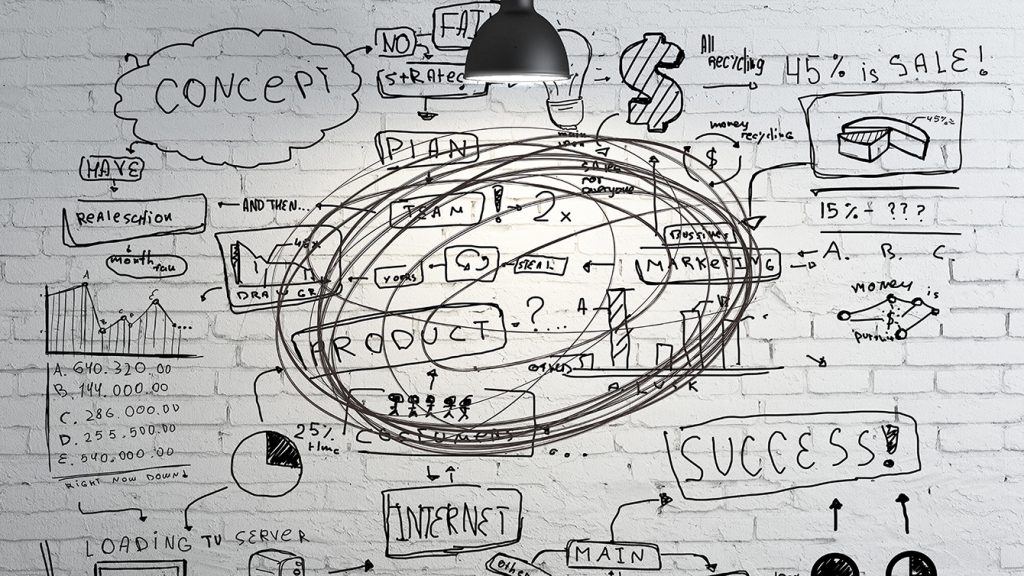 NO
CONCEPT
All
Recycling
45% is SALE!
money
recycling
45%
PLAN
$
HAVE
for
everyone
AND THEN...
TEAM ! 2x
15% - ???
month
STEAL
MARKETING
A. B. C.
DRAW GR
money
is
A
C
PRODUCT
?
A
A. 640.320.00
B. 144.000.00
C. 286.000.00
D. 255.500.00
E. 540.000.00
RIGHT NOW DOWN
25%
time
COSTUMERS
SUCCESS!
INTERNET
LOADING TV SERVER
MAIN
other